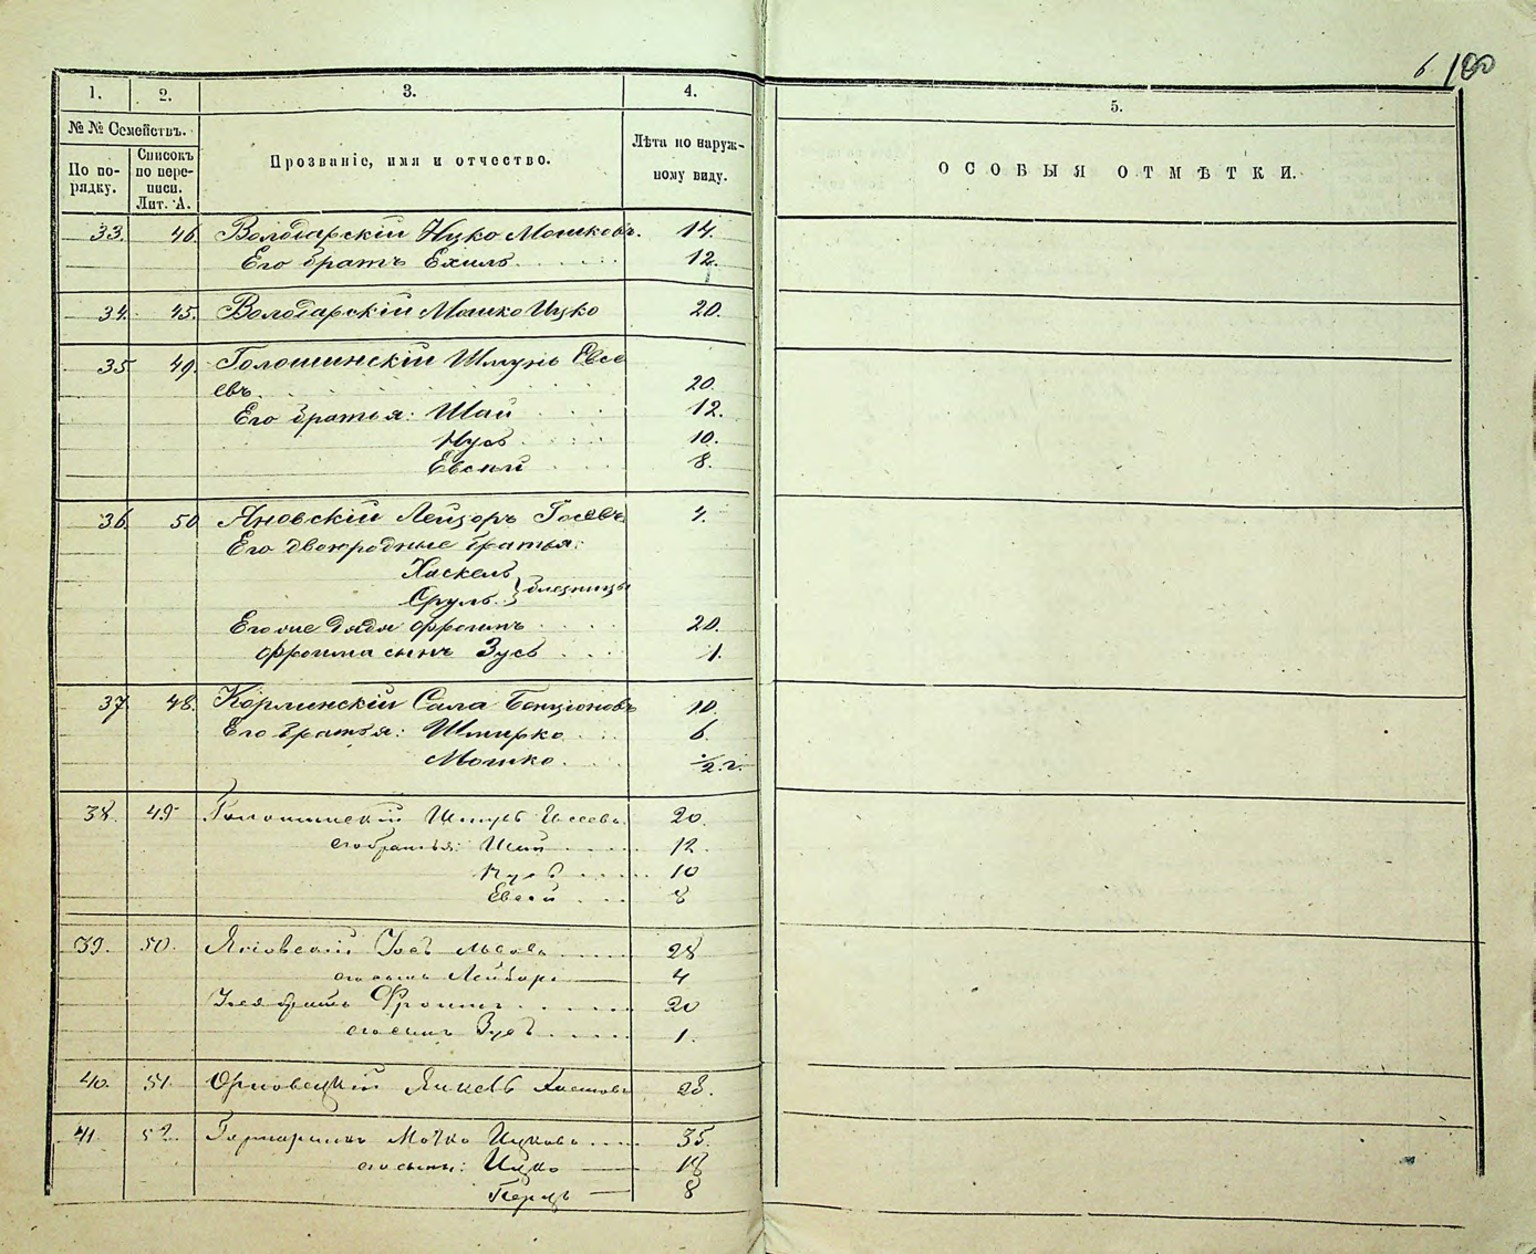 6 100
1. 2. 3. 4. 5.
№ № Семействъ.
По по-
рядку.
Списокъ
по пере-
писи.
Лит. А.
Прозваніе, имя и отчество.
Лѣта по наруж-
ному виду.
ОСОБЫЯ ОТМѢТКИ.
33. 46. Володарскій Ицко Мошковъ. 14.
Его братъ Ехиль 12.
34. 45. Володарскій Мошко Ицко 20.
35 49. Голошинскій Шмуль Евсе
евъ. 20.
Его братья: Шай 12.
Нусь 10.
Евсей 8.
36. 50 Яновскій Лейзоръ Іосевъ 4.
Его двоюродные братья:
Хаскель
Сруль } близницы
Его же дядя Фроимъ 20.
Фроима сынъ Зусь 1.
37 48. Корлинскій Сала Бенціоновъ 10.
Его братья: Шмирко 6.
Мошко. 1/2 г.
38. 49 Голошинскій Шмуль 20.
его братья: Шай 12.
Нусь 10
Евсей 8
39. 50. Яновскій Іось 28
его сынъ Лейзоръ 4
Іося братъ Фроимъ 20
его сынъ Зусь 1.
40. 51. Янкель 28.
41. 52. Мошко Ицковъ 35.
его сыны: Ицко 18
Перецъ 8